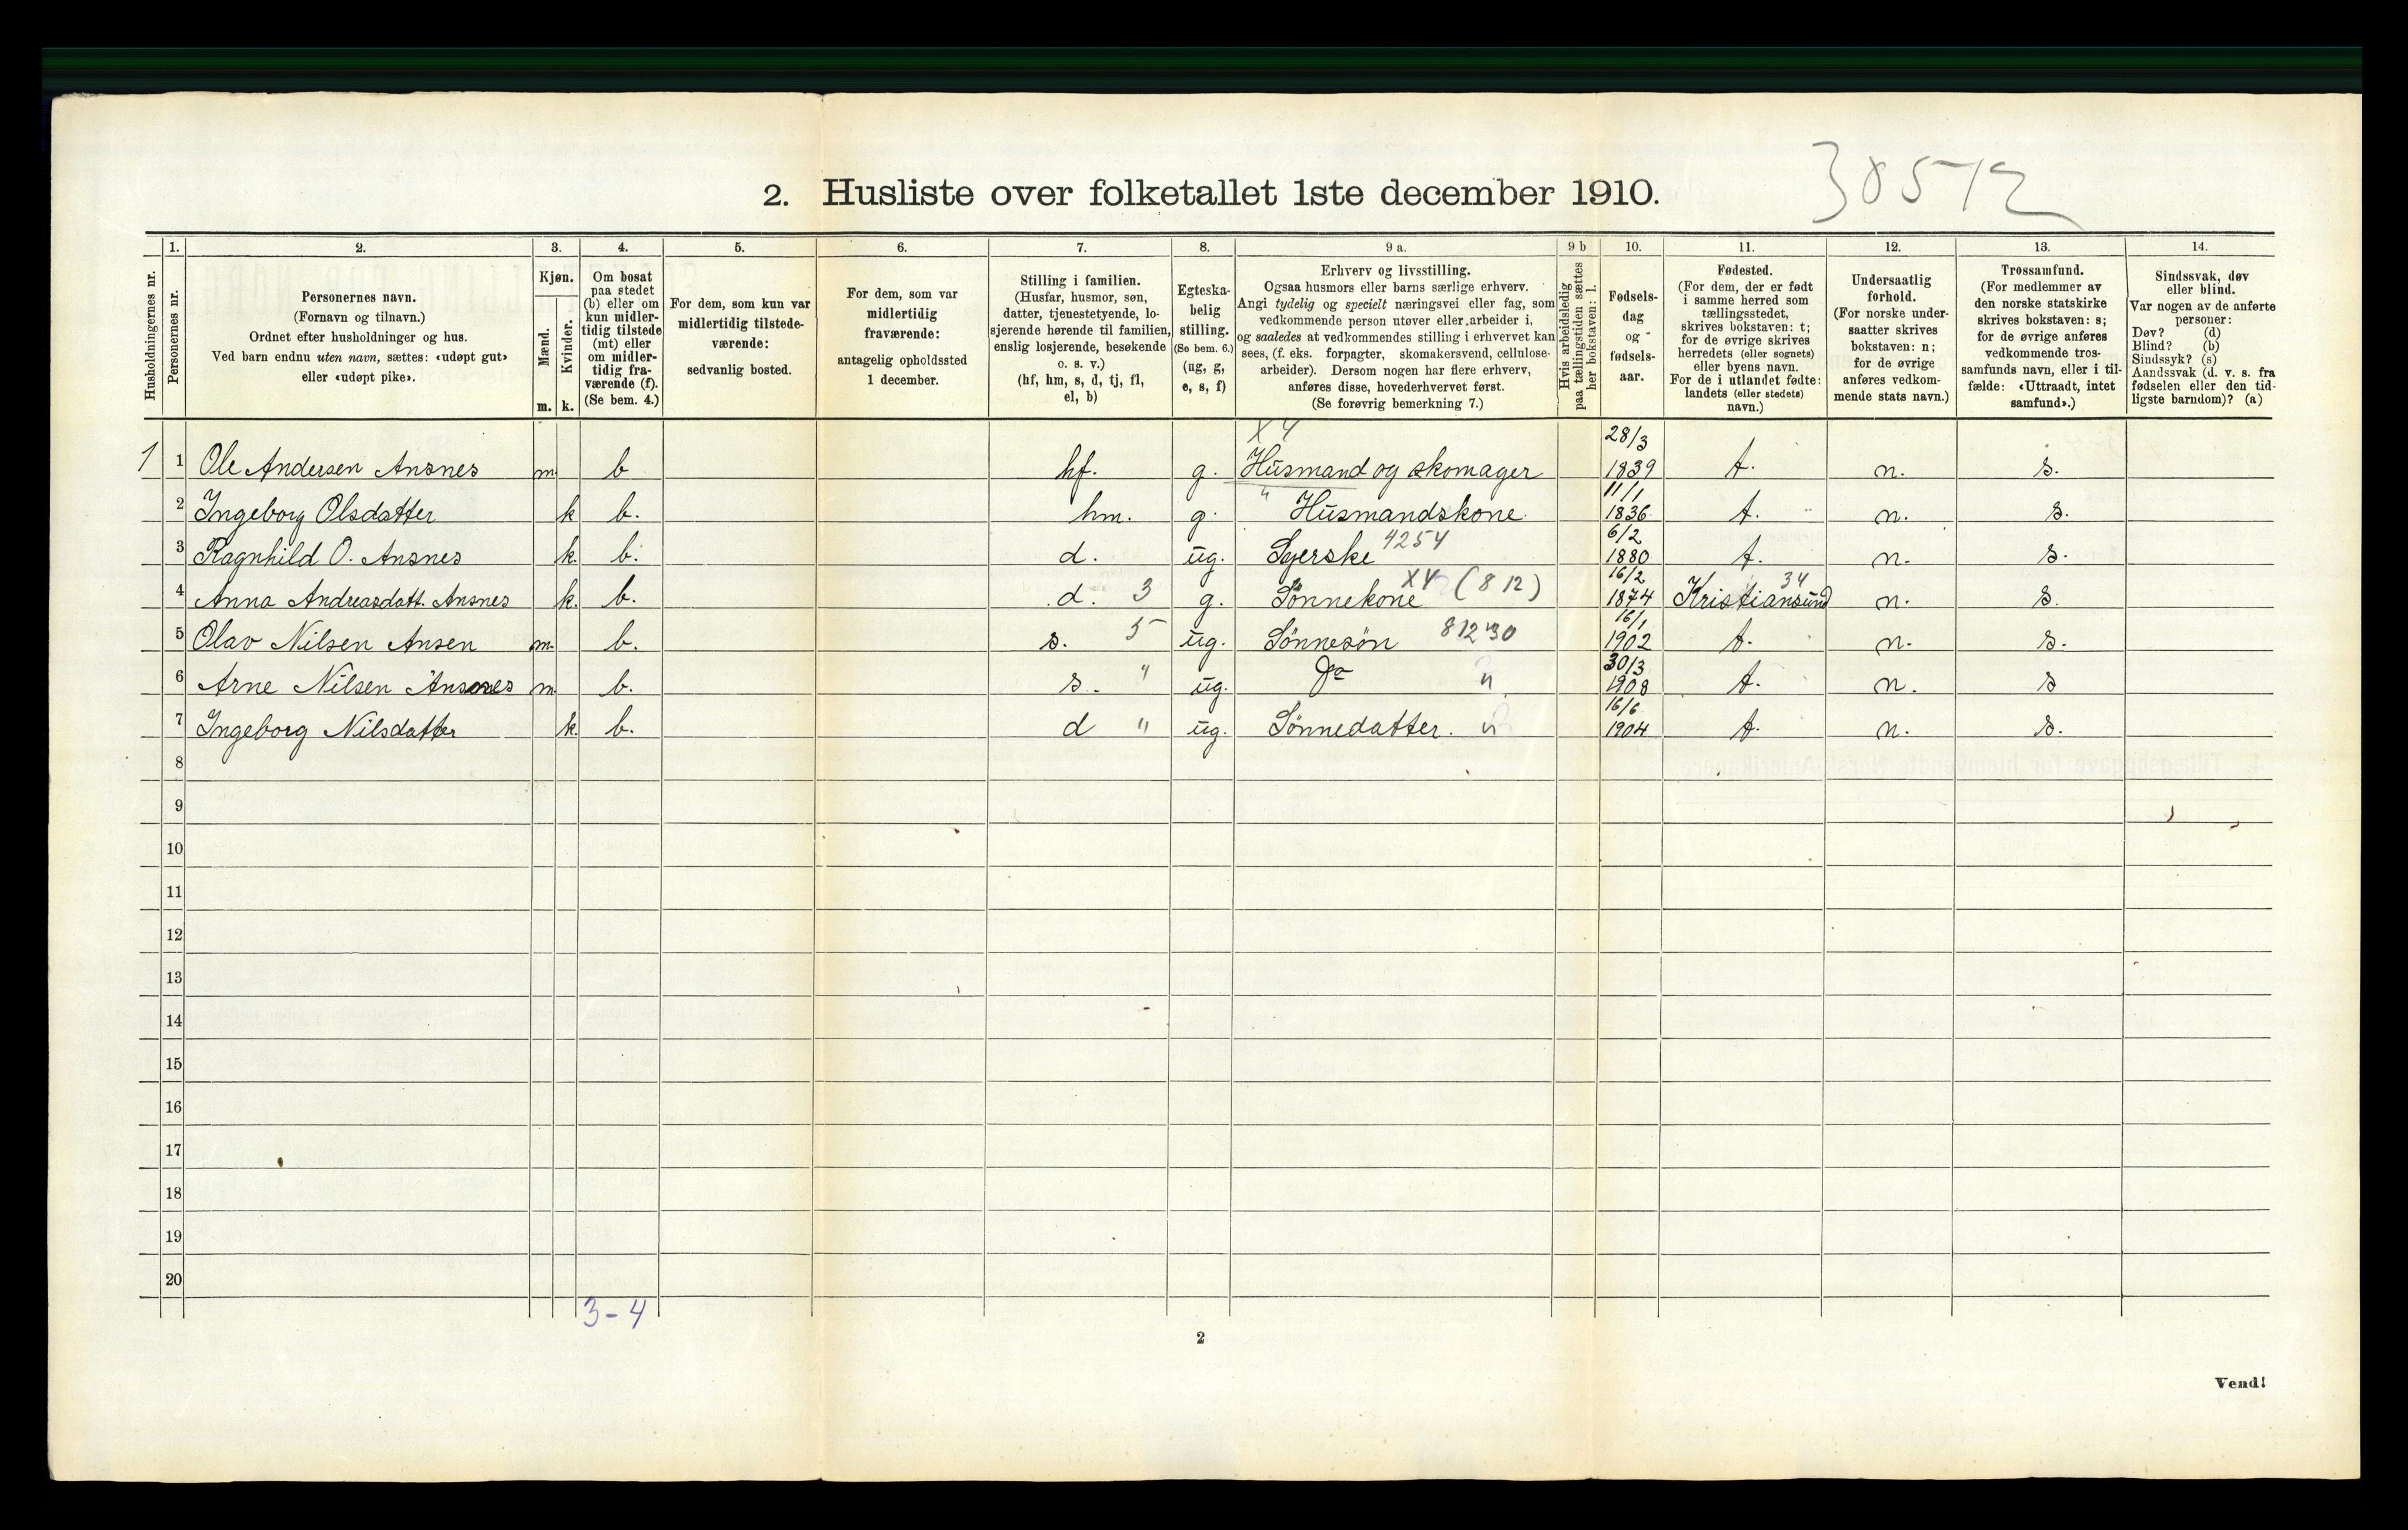 2. Husliste over folketallet 1ste december 1910.
38512
Husholdningernes nr.
1.
Personernes nr.
2.
Personernes navn.
(Fornavn og tilnavn.)
Ordnet efter husholdninger og hus.
Ved barn endnu uten navn, sættes: «udøpt gut»
eller «udøpt pike».
3.
Kjøn.
Mænd.
Kvinder.
m. k.
4.
Om bosat
paa stedet
(b) eller om
kun midler-
tidig tilstede
(mt) eller
om midler-
tidig fra-
værende (f).
(Se bem. 4.)
5.
For dem, som kun var
midlertidig tilstede-
værende:
sedvanlig bosted.
6.
For dem, som var
midlertidig
fraværende:
antagelig opholdssted
1 december.
7.
Stilling i familien.
(Husfar, husmor, søn,
datter, tjenestetyende, lo-
sjerende hørende til familien,
enslig losjerende, besøkende
o. s. v.)
(hf, hm, s, d, tj, fl,
el, b)
8.
Egteska-
belig
stilling.
(Se bem. 6.)
(ug, g,
e, s, f)
9 a.
Erhverv og livsstilling.
Ogsaa husmors eller barns særlige erhverv.
Angi tydelig og specielt næringsvei eller fag, som
vedkommende person utøver eller arbeider i,
og saaledes at vedkommendes stilling i erhvervet kan
sees, (f. eks. forpagter, skomakersvend, cellulose-
arbeider). Dersom nogen har flere erhverv,
anføres disse, hovederhvervet først.
(Se forøvrig bemerkning 7.)
9 b
Hvis arbeidsledig
paa tællingstiden sættes
her bokstaven: l.
10.
Fødsels-
dag
og
fødsels-
aar.
11.
Fødested.
(For dem, der er født
i samme herred som
tællingsstedet,
skrives bokstaven: t;
for de øvrige skrives
herredets (eller sognets)
eller byens navn.
For de i utlandet fødte:
landets (eller stedets)
navn.)
12.
Undersaatlig
forhold.
(For norske under-
saatter skrives
bokstaven: n;
for de øvrige
anføres vedkom-
mende stats navn.)
13.
Trossamfund.
(For medlemmer av
den norske statskirke
skrives bokstaven: s;
for de øvrige anføres
vedkommende tros-
samfunds navn, eller i til-
fælde: «Uttraadt, intet
samfund».)
14.
Sindssvak, døv
eller blind.
Var nogen av de anførte
personer:
Døv? (d)
Blind? (b)
Sindssyk? (s)
Aandssvak (d. v. s. fra
fødselen eller den tid-
ligste barndom)? (a)
X 4 28/3
1 1 Ole Andersen Ansnes m. b hf. g. Husmand og skomager 1839 t. n. s.
" 11/1
2 Ingeborg Olsdatter k b. hm. g. Husmandskone 1836 t. n. s.
4254 6/2
3 Ragnhild O. Ansnes k. b. d. ug. Syerske 1880 t. n. s.
X4 (8 12) 16/2 34
4 Anna Andreasdatt. Ansnes k. b. d. 3 g. Sønnekone 1874 Kristiansund n. s.
16/1
5 Olav Nilsen Ansen m. b. s. 5 ug. Sønnesøn 812 30 1902 t. n. s.
30/3
6 Arne Nilsen Ansnes m. b. s. " ug. Do " 1908 t. n. s
16/6
7 Ingeborg Nilsdatter k. b. d " ug. Sønnedatter. " 1904 t. n. s.
8
9
10
11
12
13
14
15
16
17
18
19
20
3-4
2
Vend!